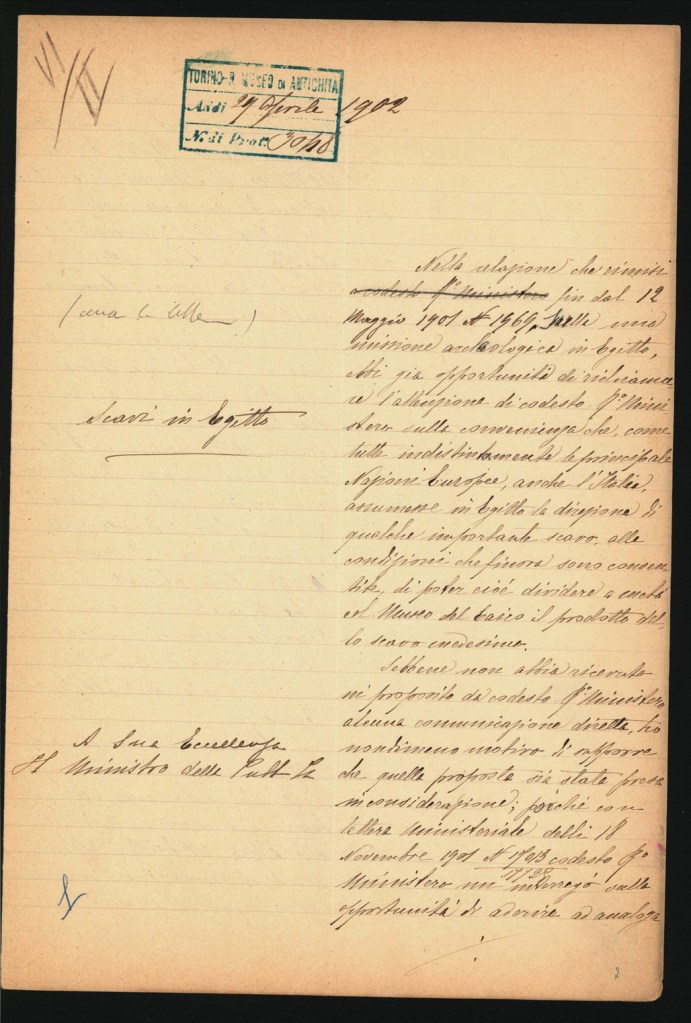 VI
II
TORINO-R. MUSEO DI ANTICHITÀ
Addì 29 Aprile 1902
N. di Prot.
Nella relazione che rimisi
a codesto R.º Ministero fin dal 12
Maggio 1901 Nº 1969, sulla una
missione archeologica in Egitto,
ebbi già opportunità di richiama-
re l'attenzione di codesto R.º Mini
stero sulla convenienza che, come
tutte indistintamente le principale
Nazioni Europee, anche l'Italia,
assumesse in Egitto la direzione di
qualche importante scavo, alle
condizioni che finora sono consen
tite, di poter cioè dividere a metà
col Museo del Cairo il prodotto del-
lo scavo medesimo.
Sebbene non abbia ricevuto
in proposito da codesto R.º Ministero
alcuna comunicazione diretta, ho
nondimeno motivo di supporre
che quella proposta sia stata presa
in considerazione; poichè con
lettera Ministeriale delli 18
Novembre 1901 Nº codesto R.º
Ministero mi interrogò sulla
opportunità di aderire ad analoga
Scavi in Egitto
A Sua Eccellenza
Il Ministro della Pubb. Is.
2